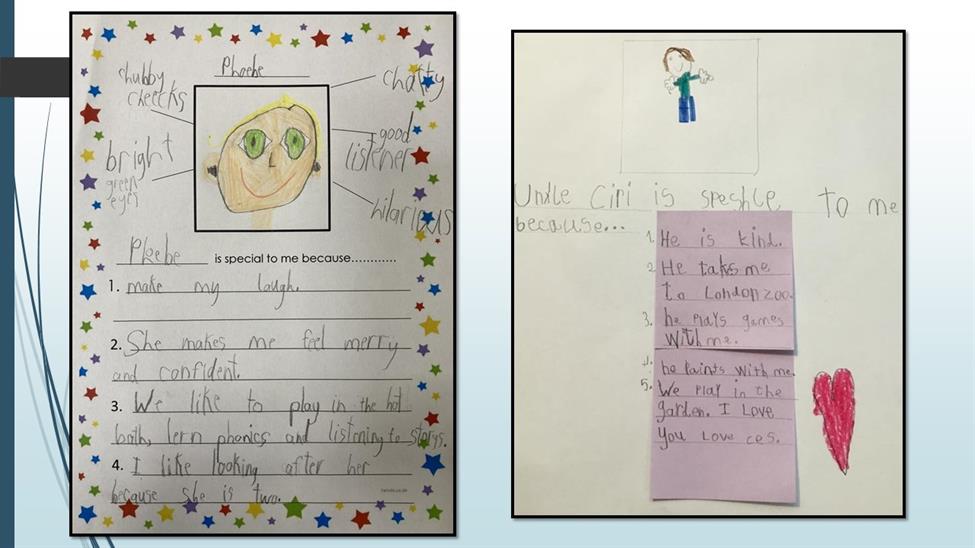 Phoebe
chubby
cheecks
chatty
bright
green
eyes
good
listener
hilarious
Phoebe is special to me because............
1. make my laugh.
2. She makes me feel merry
and confident.
3. We like to play in the hot
bath, lern phonics and listening to storys.
4. I like looking after her
because she is two.
Unkle Ciri is speshle to me
because...
1. He is kind.
2. He takes me
to London zoo.
3. he plays games
with me.
4. he paints with me.
5. We play in the
garten. I Love
you Love ces.